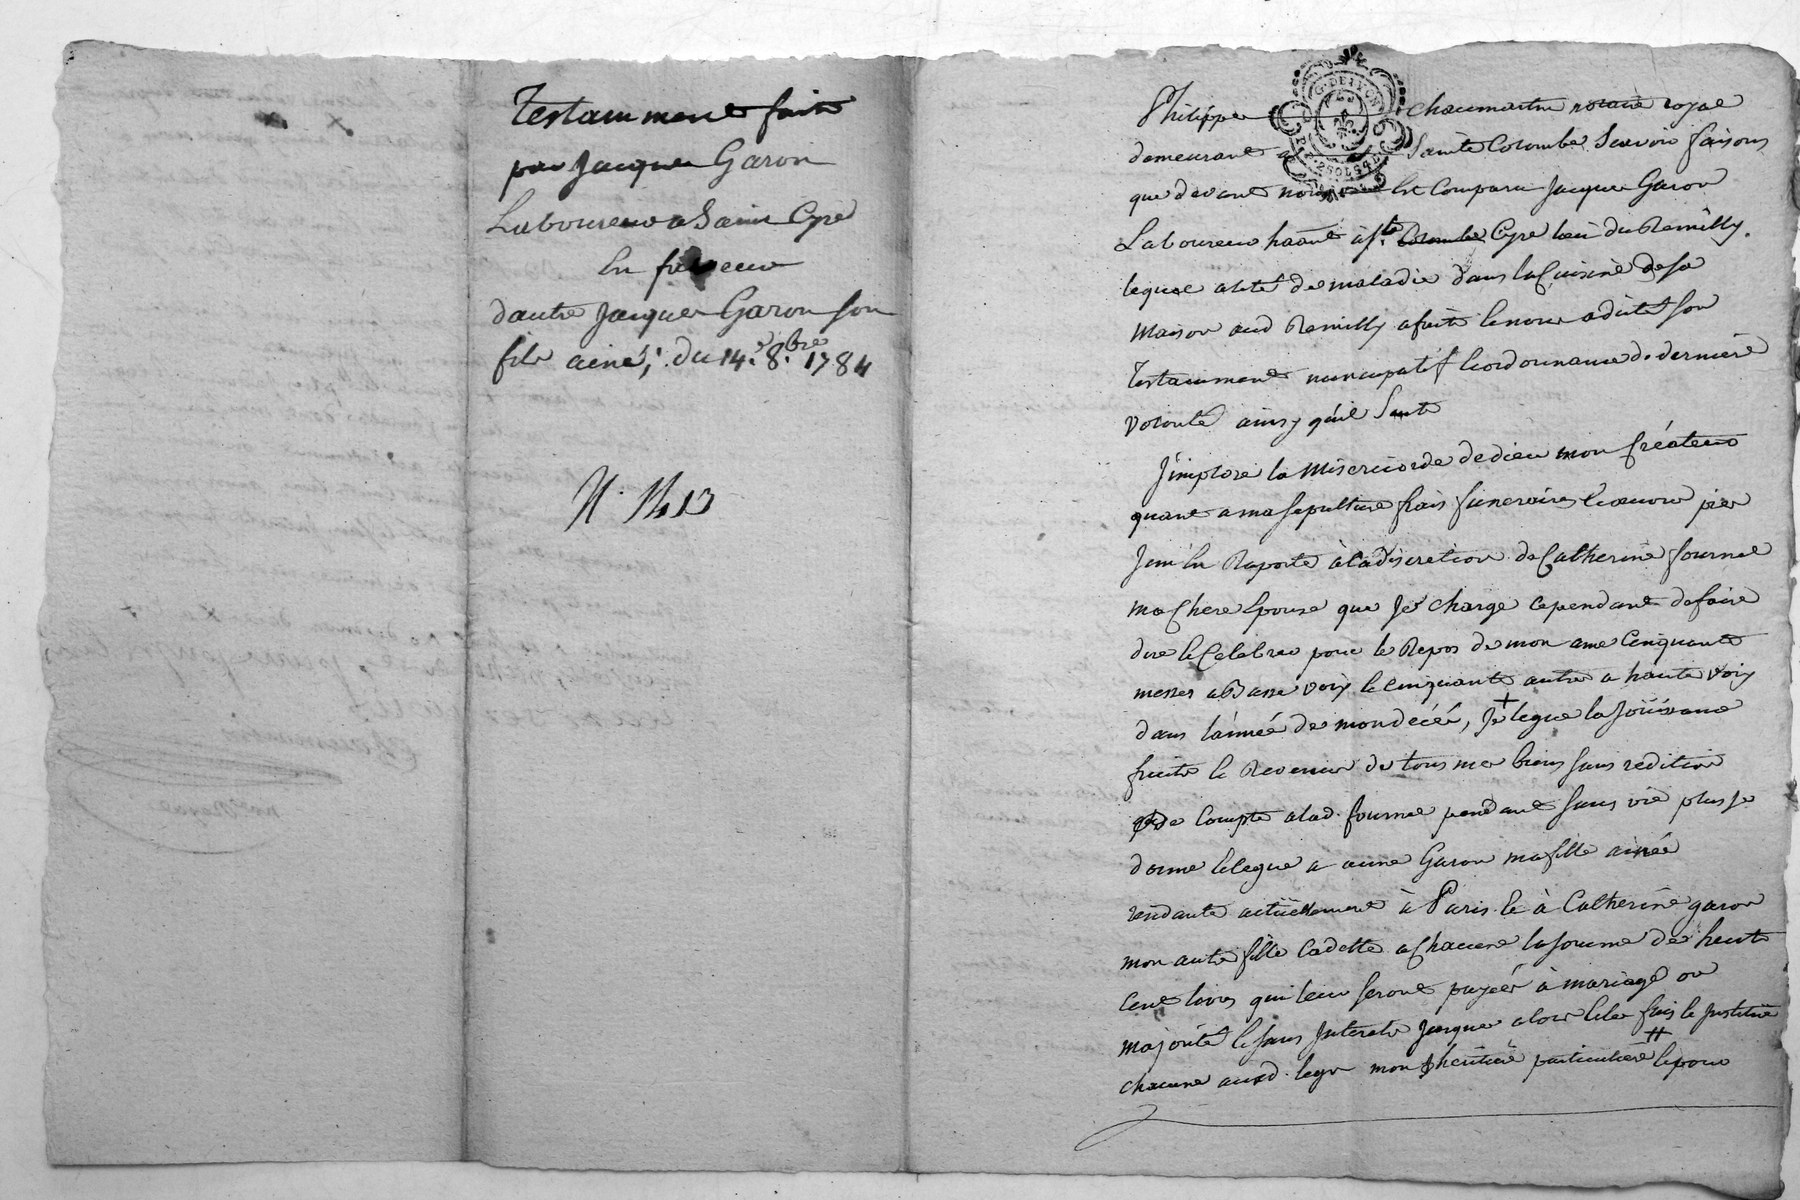 Testamment fait
par Jacque Garon
Laboureur a Saint Cyre
En faveur
dautre Jacque Garon son
fils ainé, du 14.e 8.bre 1784
N. 1413
Philippe Chaumartin notaire royal
demeurant a Sainte Colombe Scavoir faisons
que devant nous Est Comparu Jacque Garon
Laboureur habt à St. Colombe Cyre lieu du Remilly.
lequel alité de maladie dans la Cuisine de sa
Maison aud Remilly a fait le nous a dicté son
Testamment nuncupatif Et ordonnance de derniere
volonté ainsy quil Suit
J'implore la Misericorde de dieu mon Créateur
quant a ma sepulture frais funeraires Et œuvre pies
J'en En Raporte à la discretion de Catherine fournel
ma Chere Epouse que Je charge cependant de faire
dire Et Celebrer pour le Repos de mon ame Cinquante
messes a Basse voix Et cinquante autre a haute voix
dans l'année de mon décès, Je + legue la Joüissance
fruits Et Revenus de tous mes biens sans redition
de Compte a lad. fournel pendant sa vie plus Je
donne Et legue a anne Garon ma fille ainée
résidante actüellement à Paris Et à Catherine garon
mon autre fille Cadette a Chacune la somme de huit
Cent livres qui leur seront payées à mariage ou
majorité Et sans Interets Jusque alors Et les fais Et Institue
chacune aud. legs mon heritière particuliere # Et pour